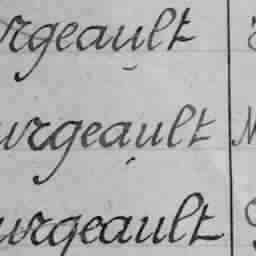 rgeault
urgeault N
urgeault